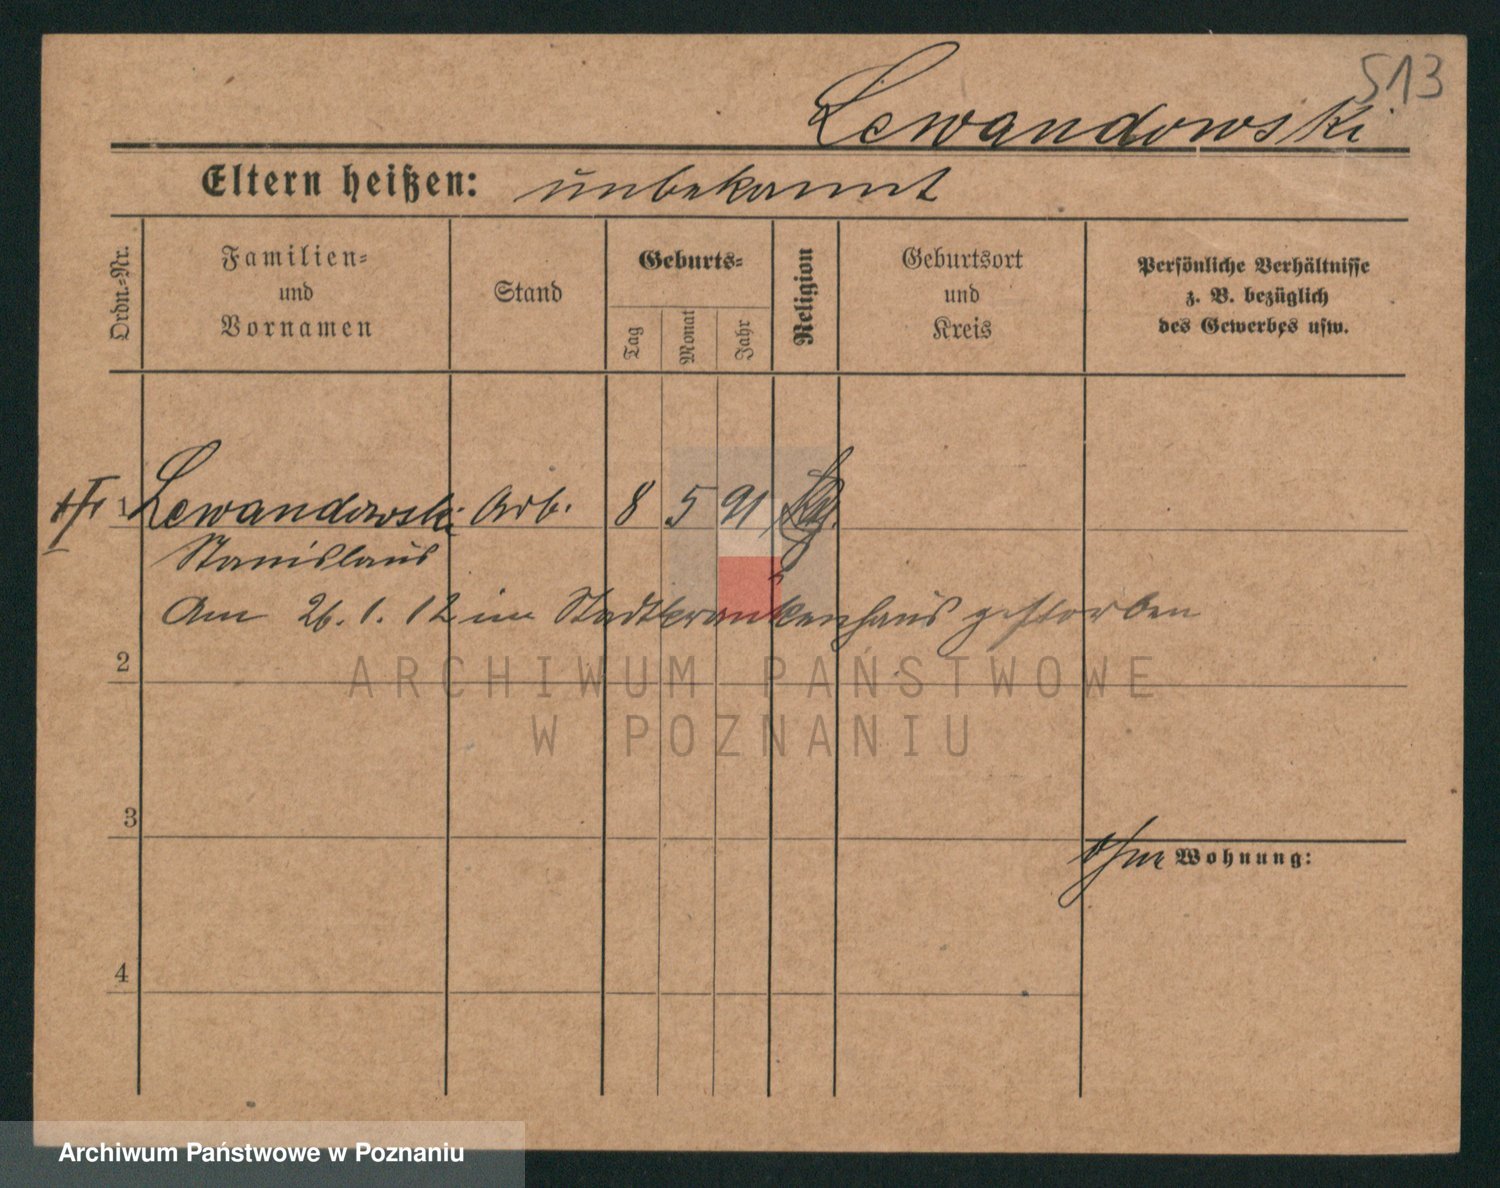 513
Lewandowski
Eltern heißen: unbekannt
Ordn.-Nr.
Familien-
und
Vornamen
Stand
Geburts-
Tag
Monat
Jahr
Religion
Geburtsort
und
Kreis
Persönliche Verhältnisse
z. B. bezüglich
des Gewerbes usw.
1 Lewandowski Arb. 8 5 91
Stanislaus
Am 26. 1. 12 im Stadtkrankenhaus gestorben
2
ARCHIWUM PAŃSTWOWE
W POZNANIU
3
ohne Wohnung:
4
Archiwum Państwowe w Poznaniu